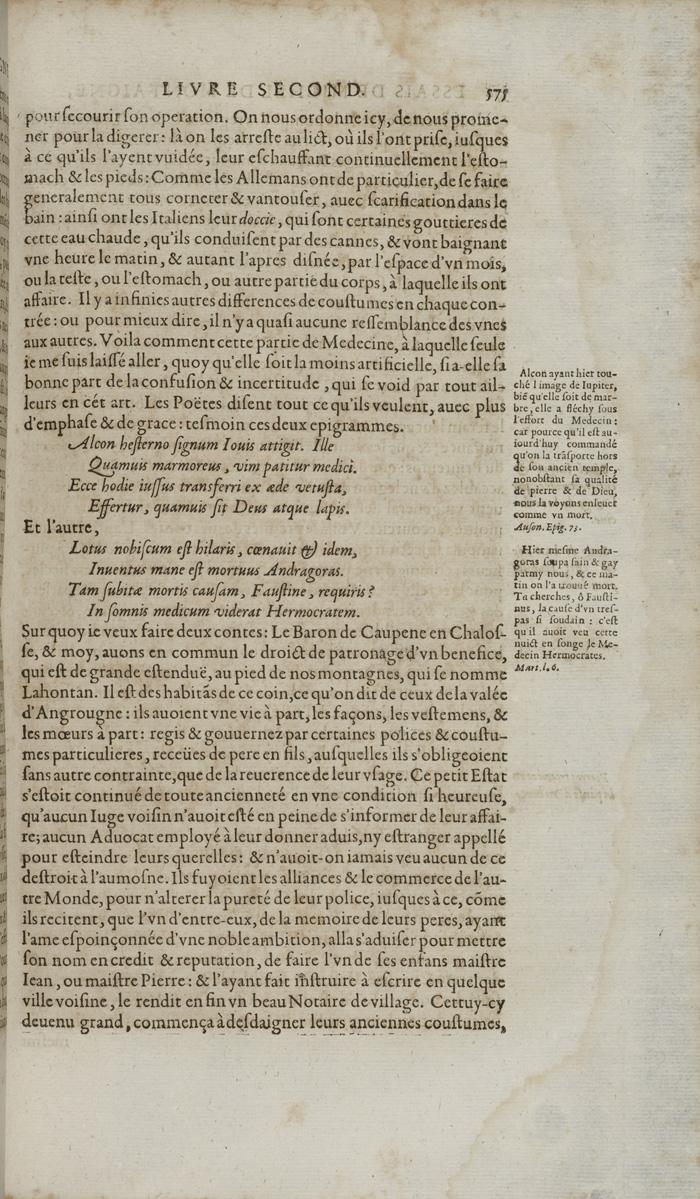 LIVRE SECOND. 575
pour ſecourir ſon operation. On nous ordonne icy, de nous prome-
ner pour la digerer: là on les arreſte au lict, où ils l'ont priſe, iuſques
à ce qu'ils l'ayent vuidée, leur eſchauffant continuellement l'eſto-
mach & les pieds: Comme les Allemans ont de particulier, de ſe faire
generalement tous corneter & vantouſer, auec ſcarification dans le
bain: ainſi ont les Italiens leur doccie, qui ſont certaines gouttieres de
cette eau chaude, qu'ils conduiſent par des cannes, & vont baignant
vne heure le matin, & autant l'apres diſnée, par l'eſpace d'vn mois,
ou la teſte, ou l'eſtomach, ou autre partie du corps, à laquelle ils ont
affaire. Il y a infinies autres differences de couſtumes en chaque con-
trée: ou pour mieux dire, il n'y a quaſi aucune reſſemblance des vnes
aux autres. Voila comment cette partie de Medecine, à laquelle ſeule
ie me ſuis laiſſé aller, quoy qu'elle ſoit la moins artificielle, ſi a-elle ſa
bonne part de la confuſion & incertitude, qui ſe void par tout ail-
leurs en cét art. Les Poëtes diſent tout ce qu'ils veulent, auec plus
d'emphaſe & de grace: teſmoin ces deux epigrammes.
Alcon heſterno ſignum Iouis attigit. Ille
Quamuis marmoreus, vim patitur medici.
Ecce hodie iuſſus transferri ex æde vetuſta,
Effertur, quamuis ſit Deus atque lapis.
Et l'autre,
Lotus nobiſcum eſt hilaris, cœnauit & idem,
Inuentus mane eſt mortuus Andragoras.
Tam ſubitæ mortis cauſam, Fauſtine, requiris?
In ſomnis medicum viderat Hermocratem.
Sur quoy ie veux faire deux contes: Le Baron de Caupene en Chaloſ-
ſe, & moy, auons en commun le droict de patronage d'vn benefice,
qui eſt de grande eſtenduë, au pied de nos montagnes, qui ſe nomme
Lahontan. Il eſt des habitãs de ce coin, ce qu'on dit de ceux de la valée
d'Angrougne: ils auoient vne vie à part, les façons, les veſtemens, &
les mœurs à part: regis & gouuernez par certaines polices & couſtu-
mes particulieres, receües de pere en fils, auſquelles ils s'obligeoient
ſans autre contrainte, que de la reuerence de leur vſage. Ce petit Eſtat
s'eſtoit continué de toute ancienneté en vne condition ſi heureuſe,
qu'aucun Iuge voiſin n'auoit eſté en peine de s'informer de leur affai-
re; aucun Aduocat employé à leur donner aduis, ny eſtranger appellé
pour eſteindre leurs querelles: & n'auoit-on iamais veu aucun de ce
deſtroit à l'aumoſne. Ils fuyoient les alliances & le commerce de l'au-
tre Monde, pour n'alterer la pureté de leur police, iuſques à ce, cõme
ils recitent, que l'vn d'entre-eux, de la memoire de leurs peres, ayant
l'ame eſpoinçonnée d'vne noble ambition, alla s'aduiſer pour mettre
ſon nom en credit & reputation, de faire l'vn de ſes enfans maiſtre
Iean, ou maiſtre Pierre: & l'ayant fait inſtruire à eſcrire en quelque
ville voiſine, le rendit en fin vn beau Notaire de village. Cettuy-cy
deuenu grand, commença à deſdaigner leurs anciennes couſtumes,
Alcon ayant hier tou-
ché l'image de Iupiter,
bié qu'elle ſoit de mar-
bre, elle a fléchy ſous
l'effort du Medecin:
car pource qu'il eſt au-
iourd'huy commandé
qu'on la trãſporte hors
de ſon ancien temple,
nonobſtant ſa qualité
de pierre & de Dieu,
nous la voyons enſeuet
comme vn mort.
Auſon. Epig. 73.
Hier meſme Andra-
goras ſoupa ſain & gay
parmy nous, & ce ma-
tin on l'a trouué mort.
Tu cherches, ô Fauſti-
nus, la cauſe d'vn treſ-
pas ſi ſoudain: c'eſt
qu'il auoit veu cette
nuict en ſonge le Me-
decin Hermocrates.
Mart. l. 6.